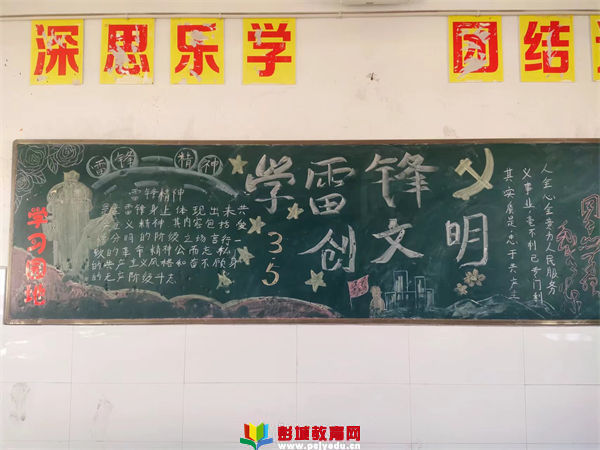 深思乐学 团结
雷锋精神
雷锋精神
雷锋身上体现出来共
产主义精神 其内容包括爱
憎分明的阶级立场言行一
致的革命精神公而忘私
的共产主义风格和奋不顾身
的无产阶级斗志
学习园地
学雷锋
创文明
3 5
其实质是:忠于共产主
义事业,毫不利己专门利
人全心全意为人民服务
彭城教育网
www.pcjyedu.cn